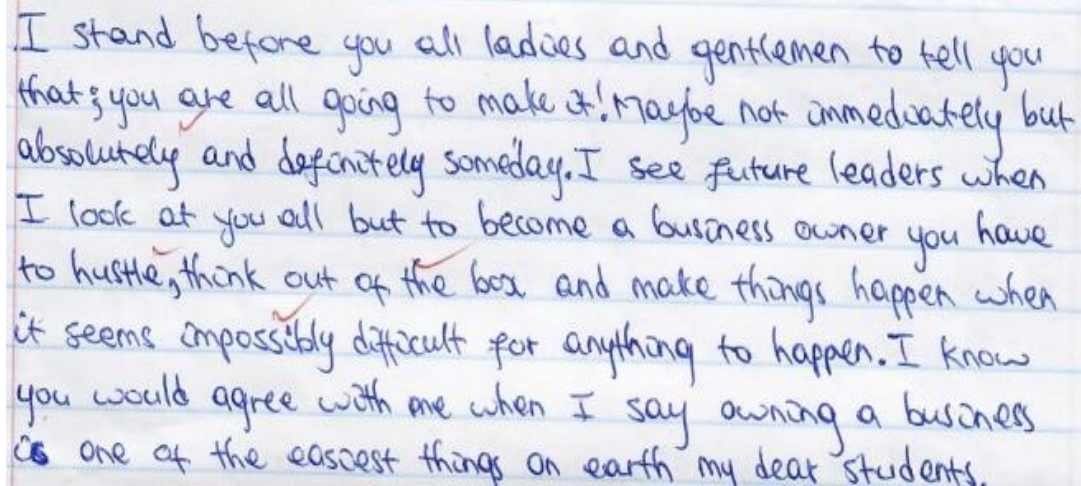 I stand before you all ladies and gentlemen to tell you
that; you are all going to make it! Maybe not immediately but
absolutely and definitely someday. I see future leaders when
I look at you all but to become a business owner you have
to hustle, think out of the box and make things happen when
it seems impossibly difficult for anything to happen. I know
you would agree with me when I say owning a business
is one of the easiest things on earth my dear students.